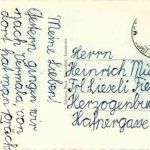 Meine Lieben!
Gestern gingen wir
nach Vermala von
dort hat man pracht
Herrn
Heinrich Mü
Frl Liesli Fre
Herzogenbu
Hafnergasse